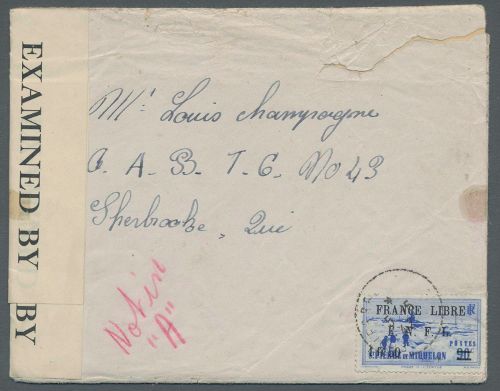 EXAMINED BY BY
Mr. Louis Champagne
C. A. B. T. C. No 43
Sherbrooke, Que
Not in
"A"
FRANCE LIBRE
F. N. F. L.
POSTES
ST PIERRE ET MIQUELON
90c